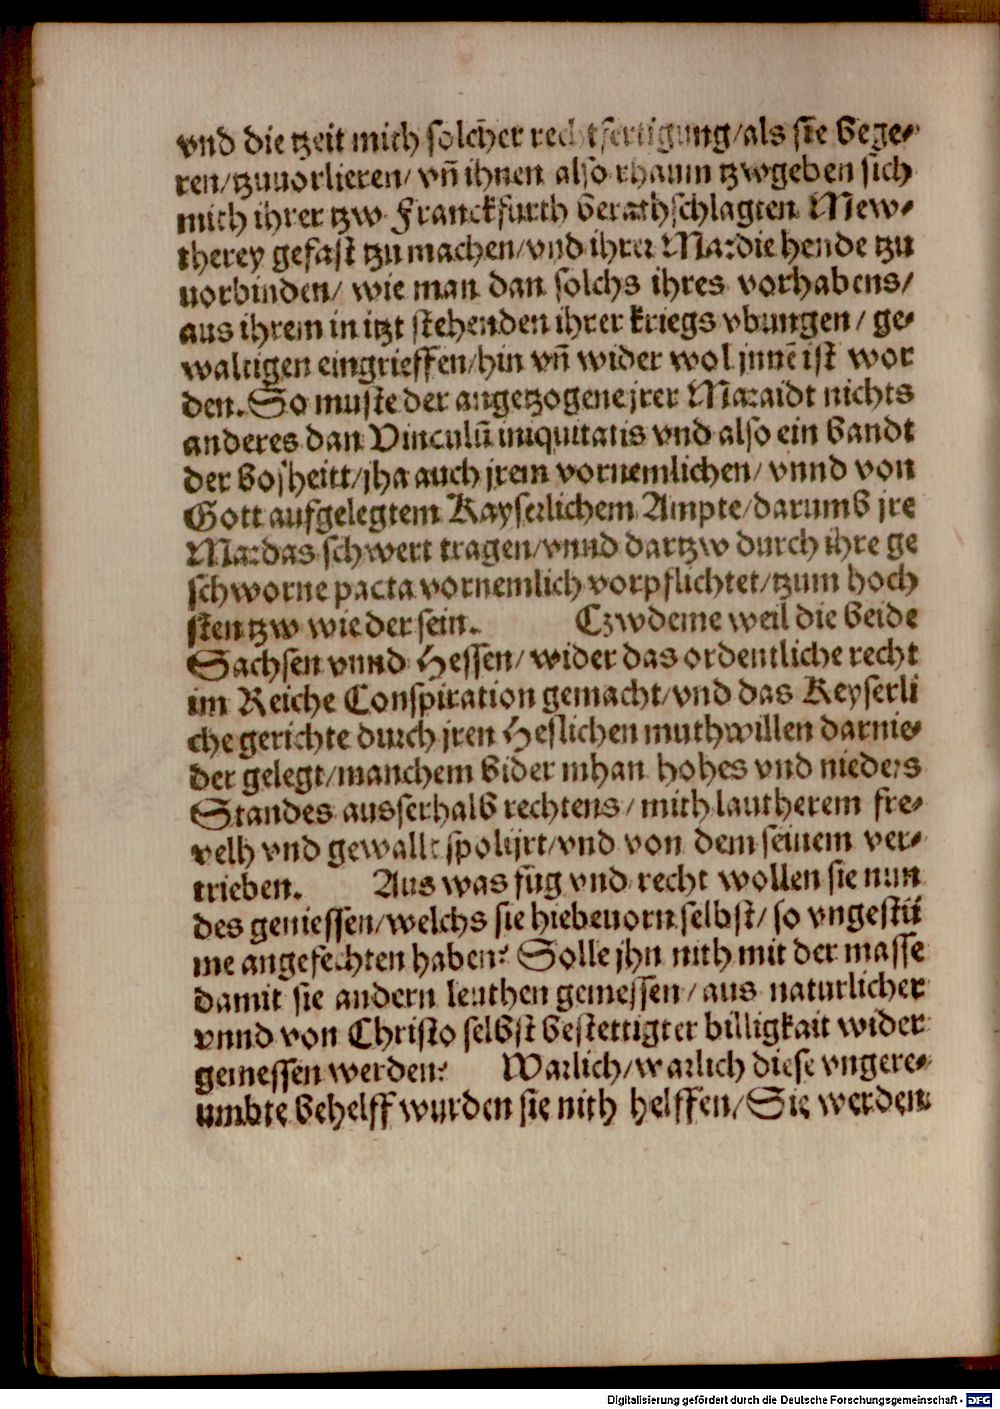 vnd die tzeit mith solcher rechtfertigung/als sie bege⸗
ren/tzuuorlieren/ vñ ihnen also rhaum tzwgeben sich
mith ihrer tzw Franckfurth berathschlagten Mew⸗
therey gefast tzu machen/vnd ihrer Ma: die hende tzu
uorbinden/ wie man dan solchs ihres vorhabens/
aus ihrem in itzt stehenden ihrer kriegs vbungen/ ge⸗
waltigen eingrieffen/hin vñ wider wol jnnē ist wor
den. So muste der angetzogene jrer Ma: aidt nichts
anderes dan Vinculū iniquitatis vnd also ein bandt
der bosheitt/jha auch jrem vornemlichen/ vnnd von
Gott aufgelegtem Kayserlichem Ampte/darumb jre
Ma: das schwert tragen/vnnd dartzw durch ihre ge
schworne pacta vornemlich vorpflichtet/tzum hoch
sten tzw wieder sein. Czwdeme weil die beide
Sachsen vnnd Hessen/ wider das ordentliche recht
im Reiche Conspiration gemacht/vnd das Keyserli
che gerichte durch jren Heslichen muthwillen darnie⸗
der gelegt/manchem bider mhan hohes vnd nieders
Standes ausserhalb rechtens/ mith lautherem fre⸗
velh vnd gewallt spolijrt/vnd von dem seinem ver⸗
trieben. Aus was fug vnd recht wollen sie nun
des geniessen/welchs sie hiebeuorn selbst/ so vngestü
me angefechten haben? Solle jhn nith mit der masse
damit sie andern leuthen gemessen/ aus naturlicher
vnnd von Christo selbst bestettigter billigkait wider
gemessen werden? Warlich/warlich diese vngere⸗
umbte behelff wurden sie nith helffen/ Sie werden
Digitalisierung gefördert durch die Deutsche Forschungsgemeinschaft - DFG